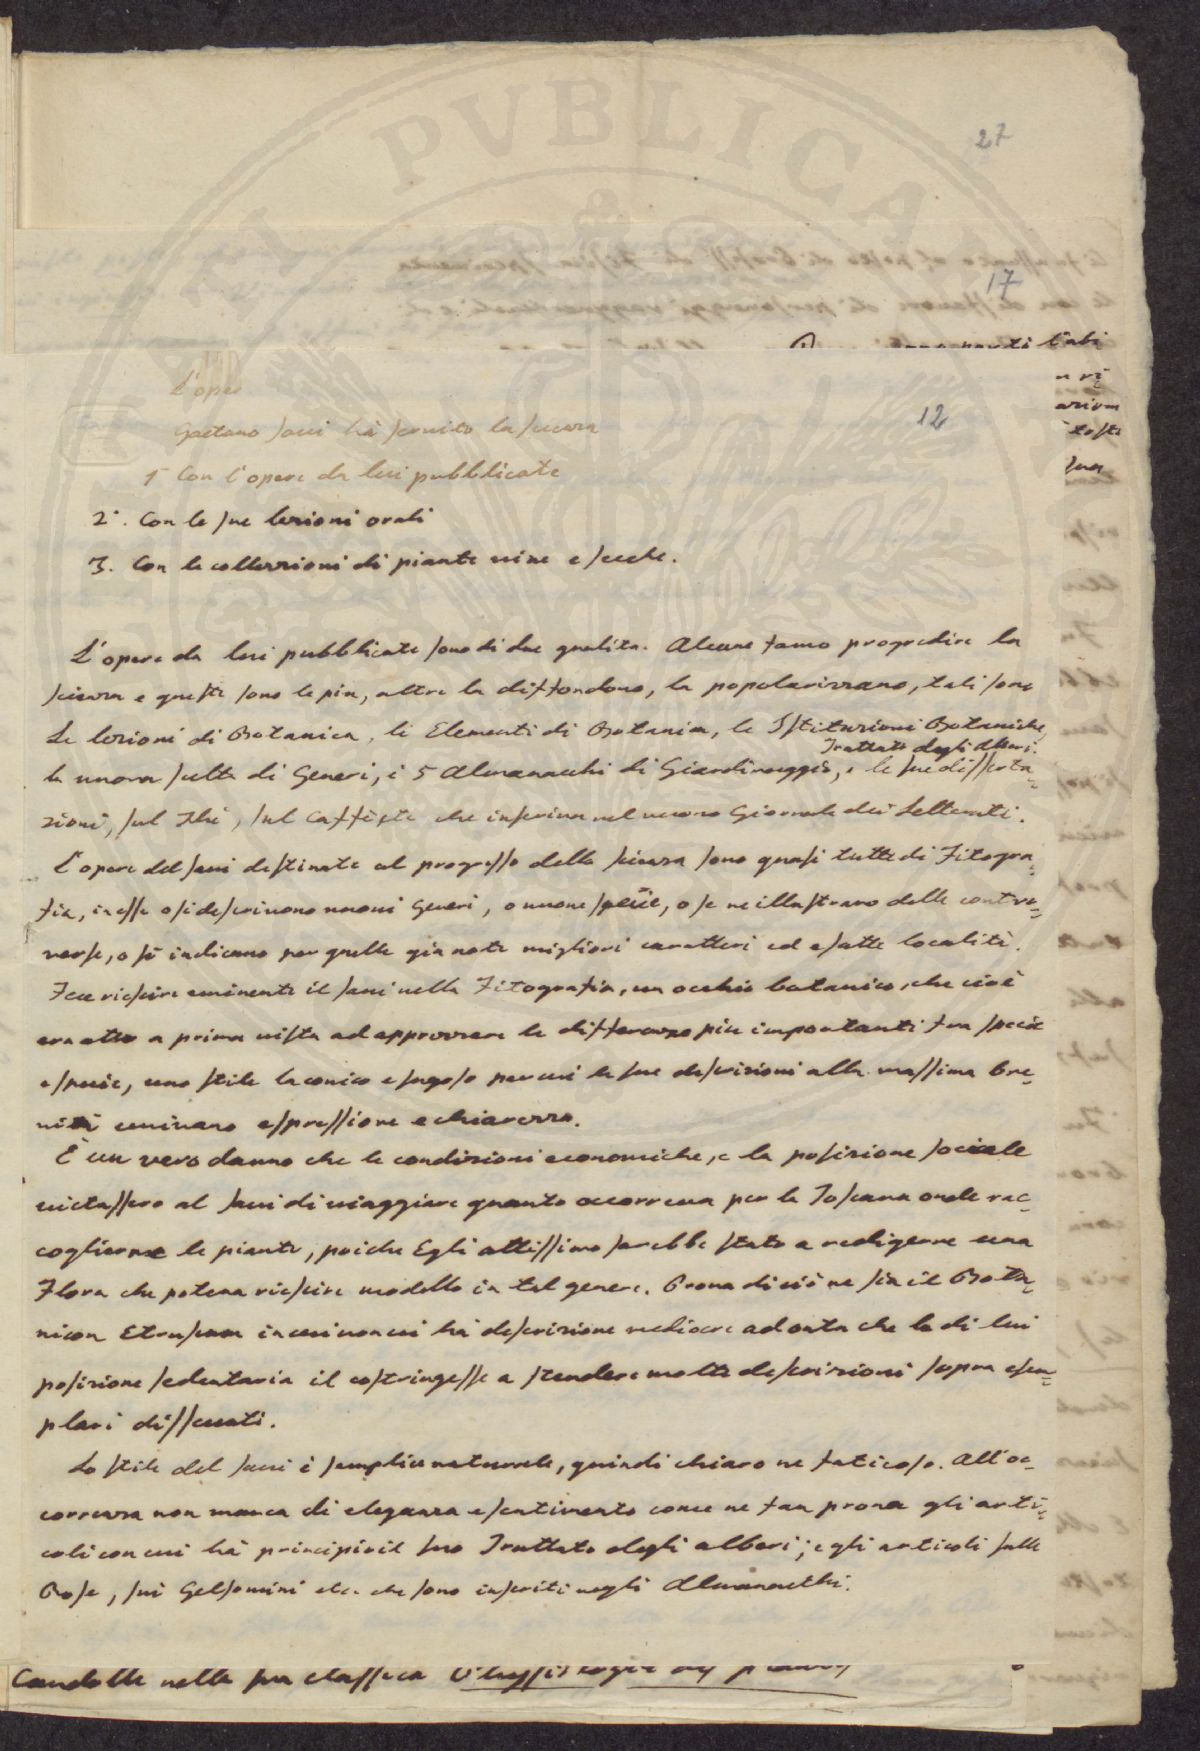 27
17
parti l'abi
12
L'oper
Gaetano Savi hà servito la scienza
1° Con l'opere da lui pubblicate
2°. Con le sue lezioni orali
3. Con le collezzioni di piante vive e secche.
L'opere da lui pubblicate sono di due qualità. Alcune fanno progredire la
scienza e queste sono le più, altre la diffondono, la popolarizzano, tali sono
Le lezioni di Botanica, li Elementi di Botanica, le Istituzioni Botaniche,
Trattato degli Alberi.
la nuova scelta di Generi, i 5 Almanacchi di Giardinaggio, e le sue disserta=
zioni, sul Thè, sul Caffè etc che inseriva nel nuovo Giornale dei Letterati.
L'opere del Savi destinate al progresso della scienza sono quasi tutte di Fitogra=
fia, in esse o si descrivono nuovi Generi, o nuove specie, o se ne illustrano delle contro=
verse, o si indicano per quelle già note migliori caratteri ed esatte località.
Fece riescire eminente il Savi nella Fitografia, un occhio botanico, che cioè
era atto a prima vista ad apprezzare le differenze più importanti fra specie
e specie, uno stile laconico e sugoso per cui le sue descrizioni alla massima bre=
vità univano espressione e chiarezza.
È un vero danno che le condizioni economiche, e la posizione sociale
vietassero al Savi di viaggiare quanto occorreva per la Toscana onde rac=
coglierne le piante, poiche Egli attissimo sarebbe stato a redigerne una
Flora che poteva riescire modello in tal genere. Prova di ciò ne sia il Bota=
nicon Etruscum in cui non vi hà descrizione mediocre ad onta che la di lui
posizione sedentaria il costringesse a stendere molte descrizioni sopra esem=
plari disseccati.
Lo stile del Savi è semplice naturale, quindi chiaro ne faticoso. All'oc=
correnza non manca di eleganza e sentimento come ne fan prova gli arti=
coli con cui hà principio il suo Trattato degli alberi; e gli articoli sulle
Rose, sui Gelsomini etc. che sono inseriti negli Almanacchi.
Candolle nella sua classica